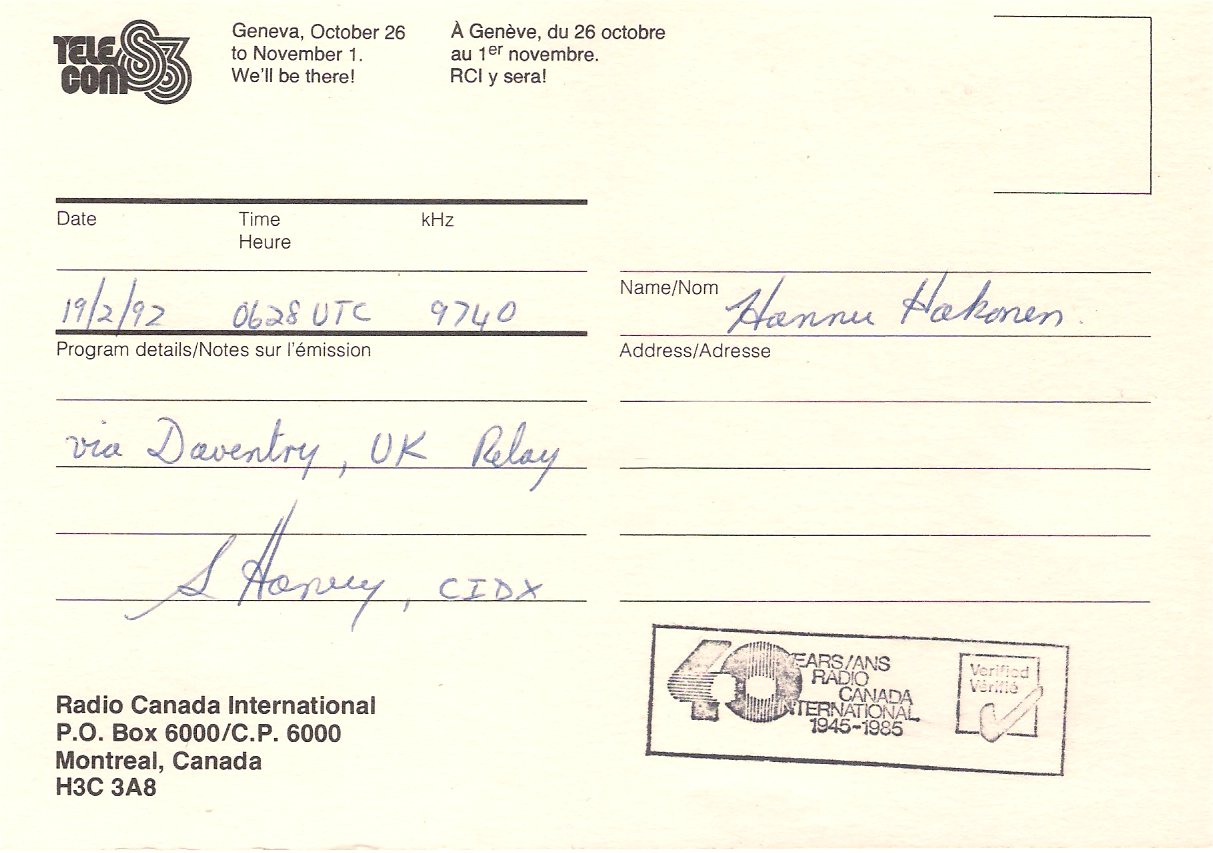 TELECOM 83
Geneva, October 26
to November 1.
We'll be there!
À Genève, du 26 octobre
au 1er novembre.
RCI y sera!
Date
Time
Heure
kHz
19/2/92 0628 UTC 9740
Program details/Notes sur l'émission
via Daventry, UK Relay
S Harvey, CIDX
Name/Nom Hannu Hakonen.
Address/Adresse
Radio Canada International
P.O. Box 6000/C.P. 6000
Montreal, Canada
H3C 3A8
40 EARS/ANS
RADIO
CANADA
NTERNATIONAL
1945-1985
Verified
Vérifié